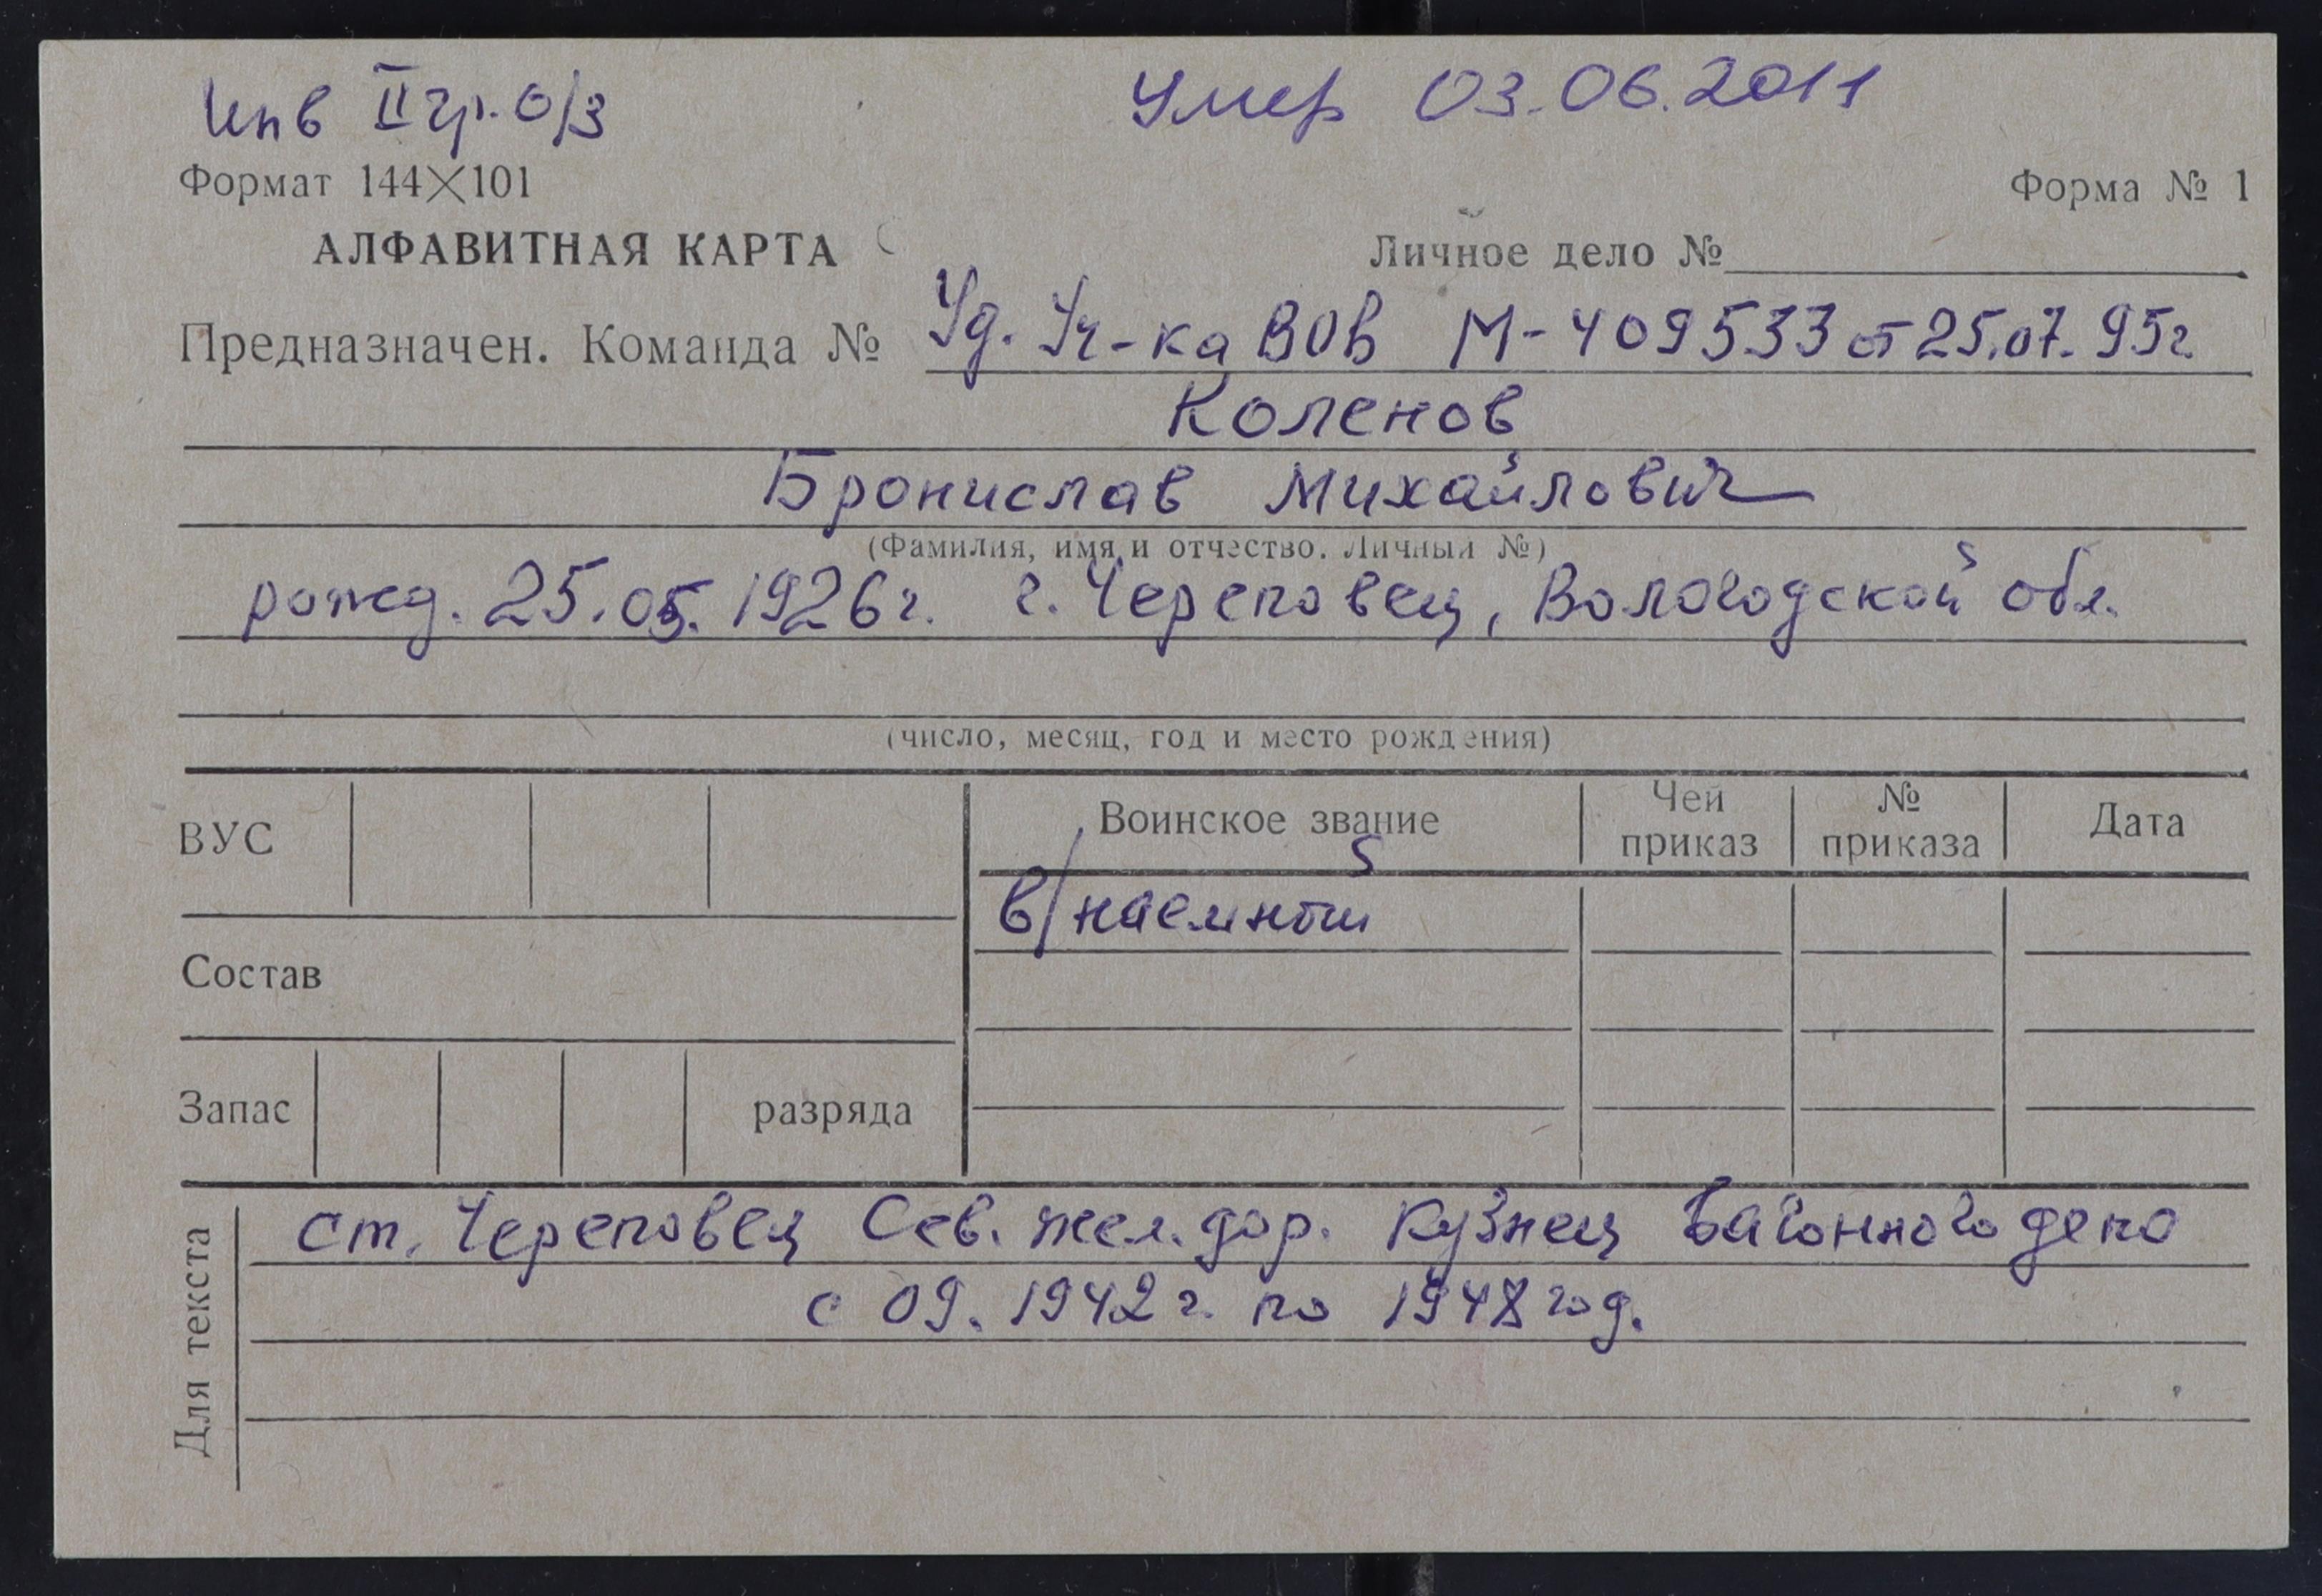 Инв II гр. о/з
Умер 03.06.2011
Формат 144×101
Форма № 1
АЛФАВИТНАЯ КАРТА
Личное дело №
Предназначен. Команда № Уд. Уч-ка ВОВ М-409533 от 25.07.95г.
Коленов
Бронислав Михайлович
(Фамилия, имя и отчество. Личный №)
рожд. 25.05.1926г. г. Череповец, Вологодской обл.
(число, месяц, год и место рождения)
ВУС
Воинское звание
Чей приказ
№ приказа
Дата
в/наемный
Состав
Запас
разряда
Для текста
ст. Череповец Сев. жел. дор. Кузнец вагонного депо
с 09. 1942 г. по 1948 год.